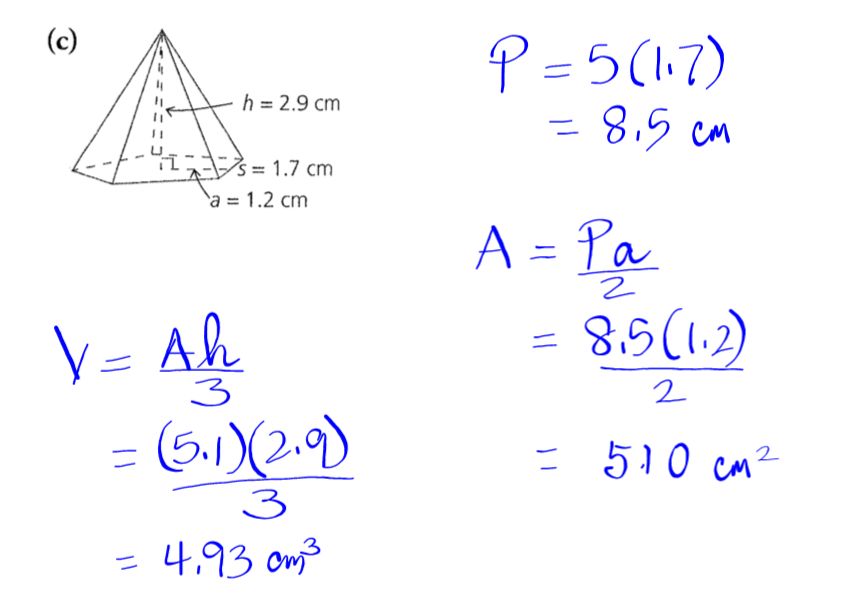 (c)
h = 2.9 cm
s = 1.7 cm
a = 1.2 cm
P = 5(1.7)
= 8.5 cm
A = Pa/2
= 8.5(1.2)/2
= 5.10 cm²
V = Ah/3
= (5.1)(2.9)/3
= 4.93 cm³